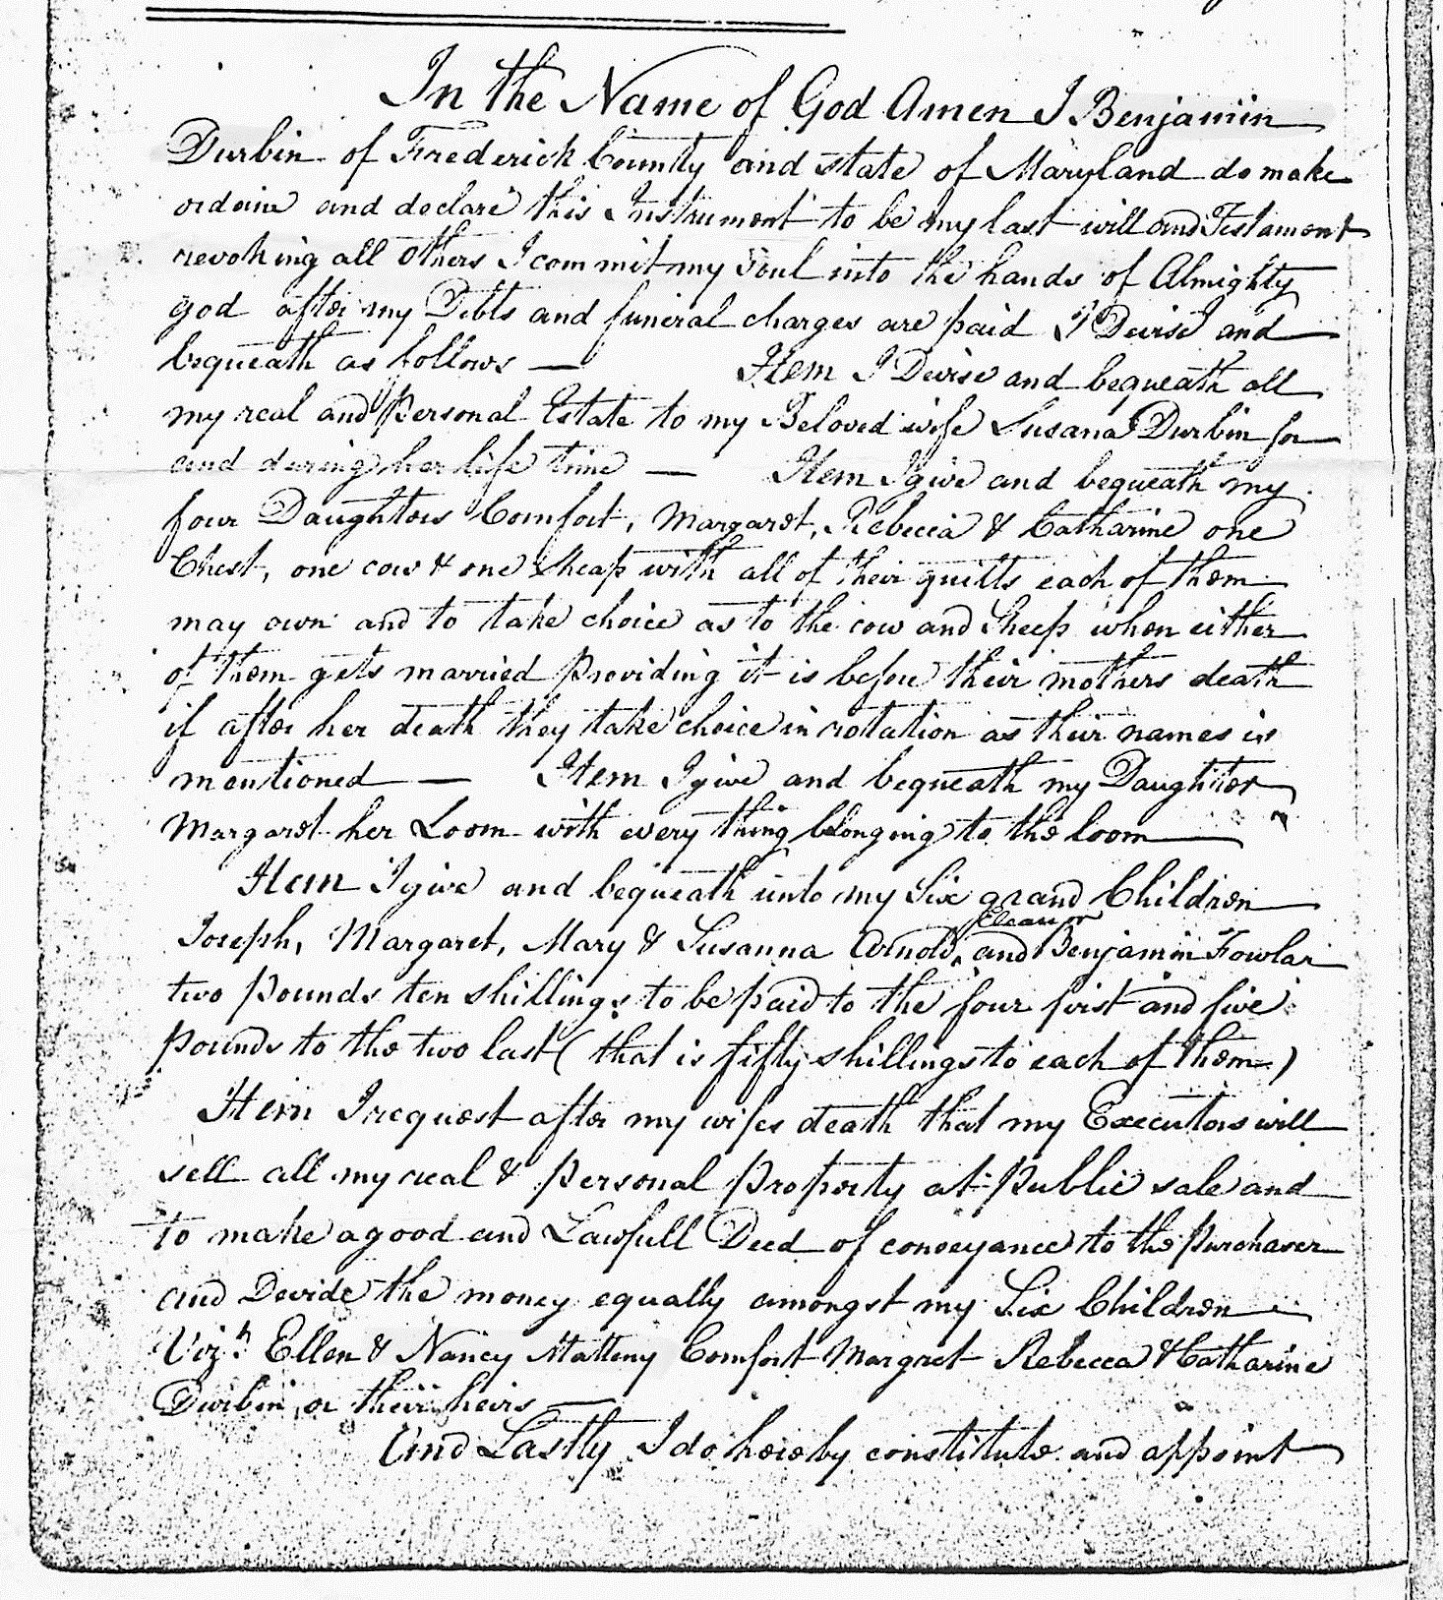 In the Name of God Amen I Benjamin
Durbin of Frederick County and state of Maryland do make
ordain and declare this Instrument to be my last will and Testament
revoking all others I commit my Soul into the hands of Almighty
god after my Debts and funeral charges are paid I Devise and
bequeath as follows — Item I Devise and bequeath all
my real and Personal Estate to my Beloved wife Susana Durbin for
and during her life time — Item I give and bequeath my
four Daughters Comfort, Margaret, Rebecca & Catharine one
Chest, one cow & one Sheap with all of their quilts each of them
may own and to take choice as to the cow and Sheep when either
of them gets married providing it is before their mothers death
if after her death they take choice in rotation as their names is
mentioned — Item I give and bequeath my Daughter
Margaret her Loom with every thing belonging to the loom
Item I give and bequeath unto my Six grand Children
Eleanor
Joseph, Margaret, Mary & Susanna Arnold, and Benjamin Fowlar
two pounds ten shillings to be paid to the four first and five
pounds to the two last (that is fifty shillings to each of them)
Item I request after my wifes death that my Executors will
sell all my real & personal property at Public sale and
to make a good and Lawfull Deed of conveyance to the Purchaser
and Devide the money equally amongst my Six Children
Viz. Ellen & Nancy Matteny Comfort Margret Rebecca & Catharine
Durbin or their heirs —
And Lastly I do hereby constitute and appoint